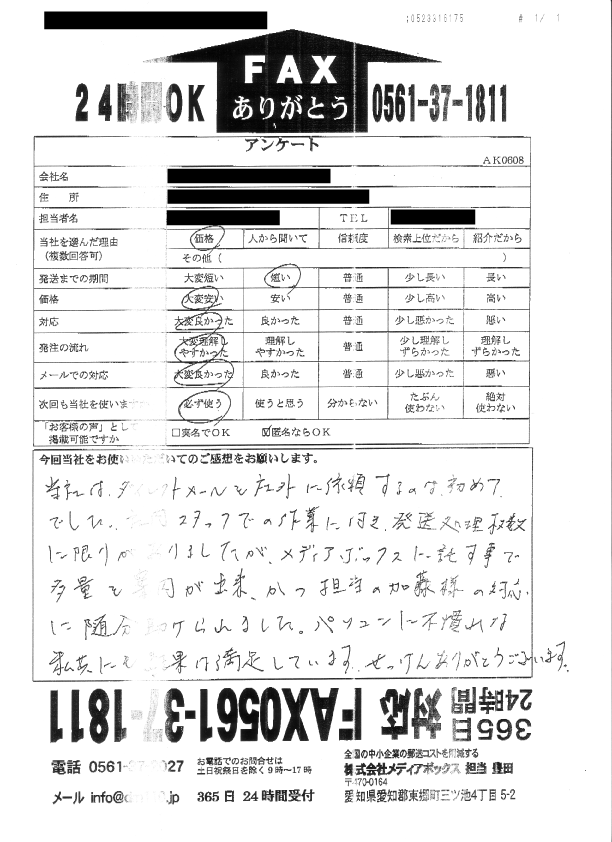 :0523316175 # 1/ 1
24時間OK
FAX
ありがとう
0561-37-1811
アンケート
AK0608
会社名
住 所
担当者名 TEL
当社を選んだ理由 価格 人から聞いて 信頼度 検索上位だから 紹介だから
(複数回答可) その他( )
発送までの期間 大変短い 短い 普通 少し長い 長い
価格 大変安い 安い 普通 少し高い 高い
対応 大変良かった 良かった 普通 少し悪かった 悪い
発注の流れ 大変理解しやすかった 理解しやすかった 普通 少し理解しずらかった 理解しずらかった
メールでの対応 大変良かった 良かった 普通 少し悪かった 悪い
次回も当社を使いますか 必ず使う 使うと思う 分からない たぶん使わない 絶対使わない
「お客様の声」として
掲載可能ですか □実名でOK ☑匿名ならOK
今回当社をお使いいただいてのご感想をお願いします。
当社は、ダイレクトメールを社外に依頼するのは、初めて
でした。 スタッフでの作業に付き、発送処理枚数
に限りがありましたが、メディアボックスに託す事で
多量も 内が出来、かつ担当の加藤様の対応
に随分助けられました。パソコンに不慣れな
私共にも 果は満足しています。 ありがとうございます。
365日
24時間
対応 FAX0561-37-1811
電話 0561-37-2027
お電話でのお問合せは
土日祝祭日を除く9時~17時
メール info@d .jp
365日 24時間受付
全国の中小企業の郵送コストを削減する
株式会社メディアボックス 担当 豊田
〒470-0164
愛知県愛知郡東郷町三ツ池4丁目5-2